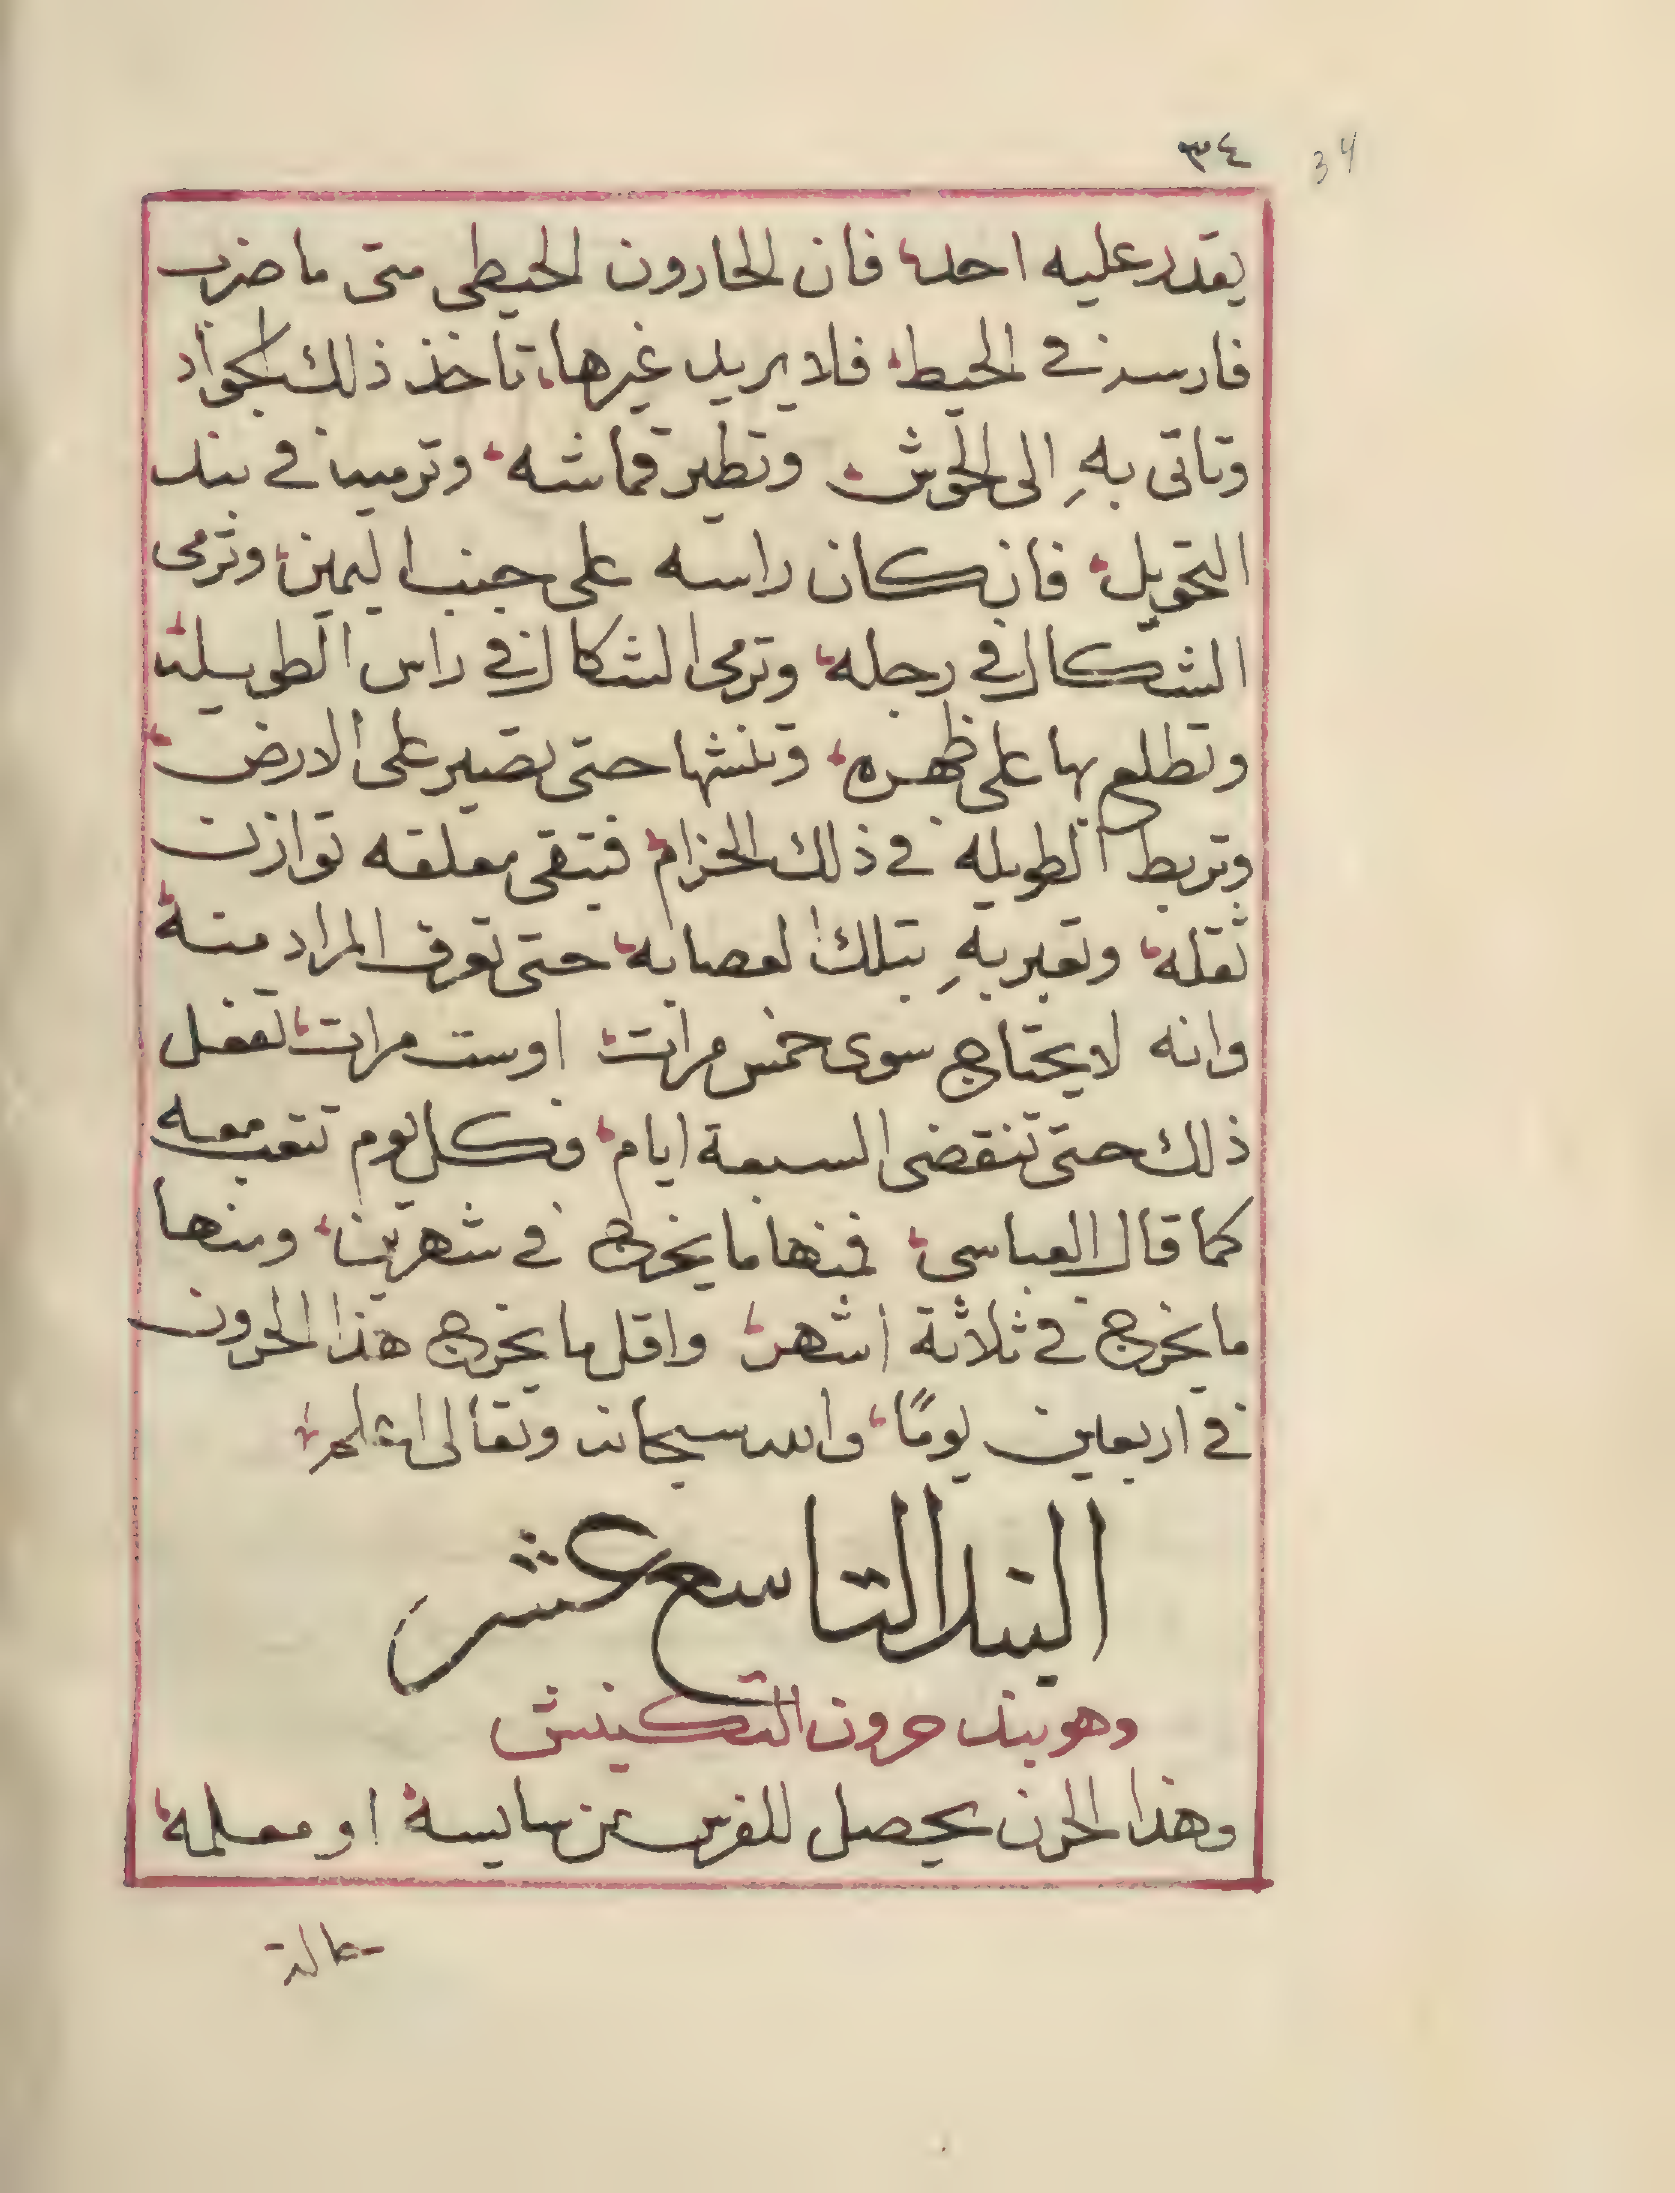 ٣٤ 34
يقدر عليه احد، فان الحارون الحيطي متى ما ضرب
فارسه في الحيط، فلا يريد غيرها، تاخذ ذلك الجواد
وتاتى بهِ الى الحوش وتطير قماشه، وترميه في بند
التحويل، فان كان راسه على جنب اليمين، وترمى
الشكال في رجله، وترمى الشكال في راس الطويلة،
وتطلع بها على ظهره، وتنشها حتى تصير على الارض،
وتربط الطويله في ذلك الحزام، فتبقى معلقه توازن
ثقله، وتعبر بهِ بتلك العصابه، حتى تعرف المراد منه
وانه لا يحتاج سوى خمس مرات، اوست مرات، تفعل
ذلك حتى تنقضى السبعة ايام، وكل يوم تتعب معه
كما قال العباسي، فمنها ما يخرج في شهرين، ومنها
ما يخرج في ثلاثة اشهر، واقل ما يخرج هذا الحرون
في اربعين يومًا، والله سبحانه وتعالى اعلم
البند التاسع عشر
وهو بند حرون التكبنش
وهذا الحرن يحصل للفرس من سايسه او معلمه،
حالة